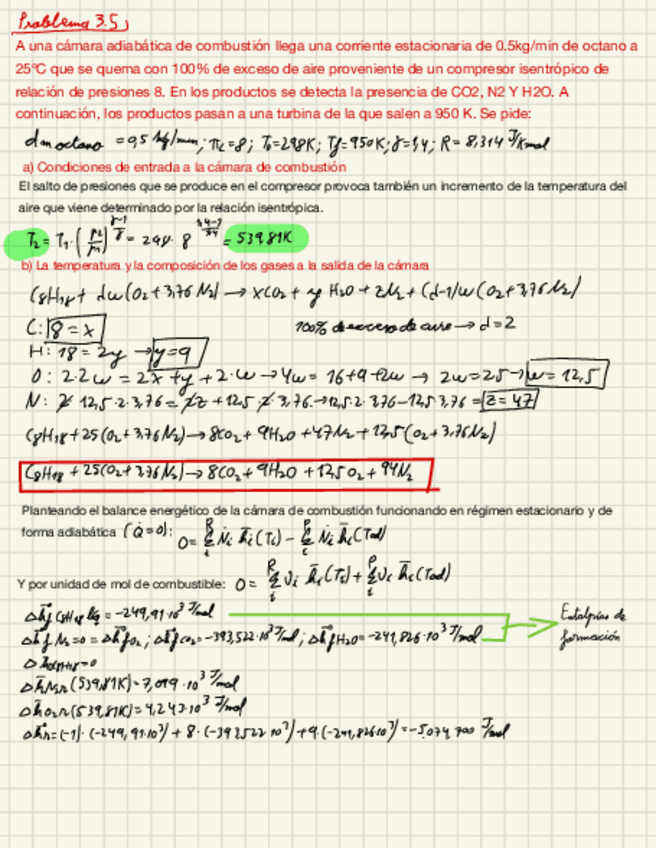 Problema 3.5
A una cámara adiabática de combustión llega una corriente estacionaria de 0.5kg/min de octano a
25ºC que se quema con 100% de exceso de aire proveniente de un compresor isentrópico de
relación de presiones 8. En los productos se detecta la presencia de CO2, N2 Y H2O. A
continuación, los productos pasan a una turbina de la que salen a 950 K. Se pide:
dm octano = 0,5 kg/min; πc=8; T0=298K; Tf=950K; γ=1,4; R=8,314 J/Kmol
a) Condiciones de entrada a la cámara de combustión
El salto de presiones que se produce en el compresor provoca también un incremento de la temperatura del
aire que viene determinado por la relación isentrópica.
T2 = T1·(p2/p1)^(γ-1/γ) = 298·8^(1,4-1/1,4) = 539,81K
b) La temperatura y la composición de los gases a la salida de la cámara
C8H18 + αw(O2+3,76N2) → xCO2 + yH2O + zN2 + (α-1)w(O2+3,76N2)
C: 8=x 100% de exceso de aire → α=2
H: 18=2y → y=9
O: 2·2w = 2x+y+2·w → 4w = 16+9+2w → 2w=25 → w=12,5
N: 2·12,5·2·3,76 = 2z + 12,5·2·3,76 → 12,5·2·3,76 - 12,5·3,76 = z = 47
C8H18 + 25(O2+3,76N2) → 8CO2 + 9H2O + 47N2 + 12,5(O2+3,76N2)
C8H18 + 25(O2+3,76N2) → 8CO2 + 9H2O + 12,5O2 + 94N2
Planteando el balance energético de la cámara de combustión funcionando en régimen estacionario y de
forma adiabática (Q̇=0): 0 = Σ Ṅi h̄i(Ti) - Σ Ṅi h̄i(Tad)
Y por unidad de mol de combustible: 0 = Σ νi h̄i(Ti) + Σ νi h̄i(Tad)
Δh̄f C8H18 = -249,91·10³ J/mol
Δh̄f N2=0=Δh̄f O2; Δh̄f CO2=-393,522·10³ J/mol; Δh̄f H2O=-241,826·10³ J/mol Entalpías de formación
Δh̄C8H18=0
Δh̄N2 (539,81K)=7,099·10³ J/mol
Δh̄O2 (539,81K)=4,243·10³ J/mol
Δhr=(-1)·(-249,91·10³)+8·(-393,522·10³)+9·(-241,826·10³)=-5.074.700 J/mol